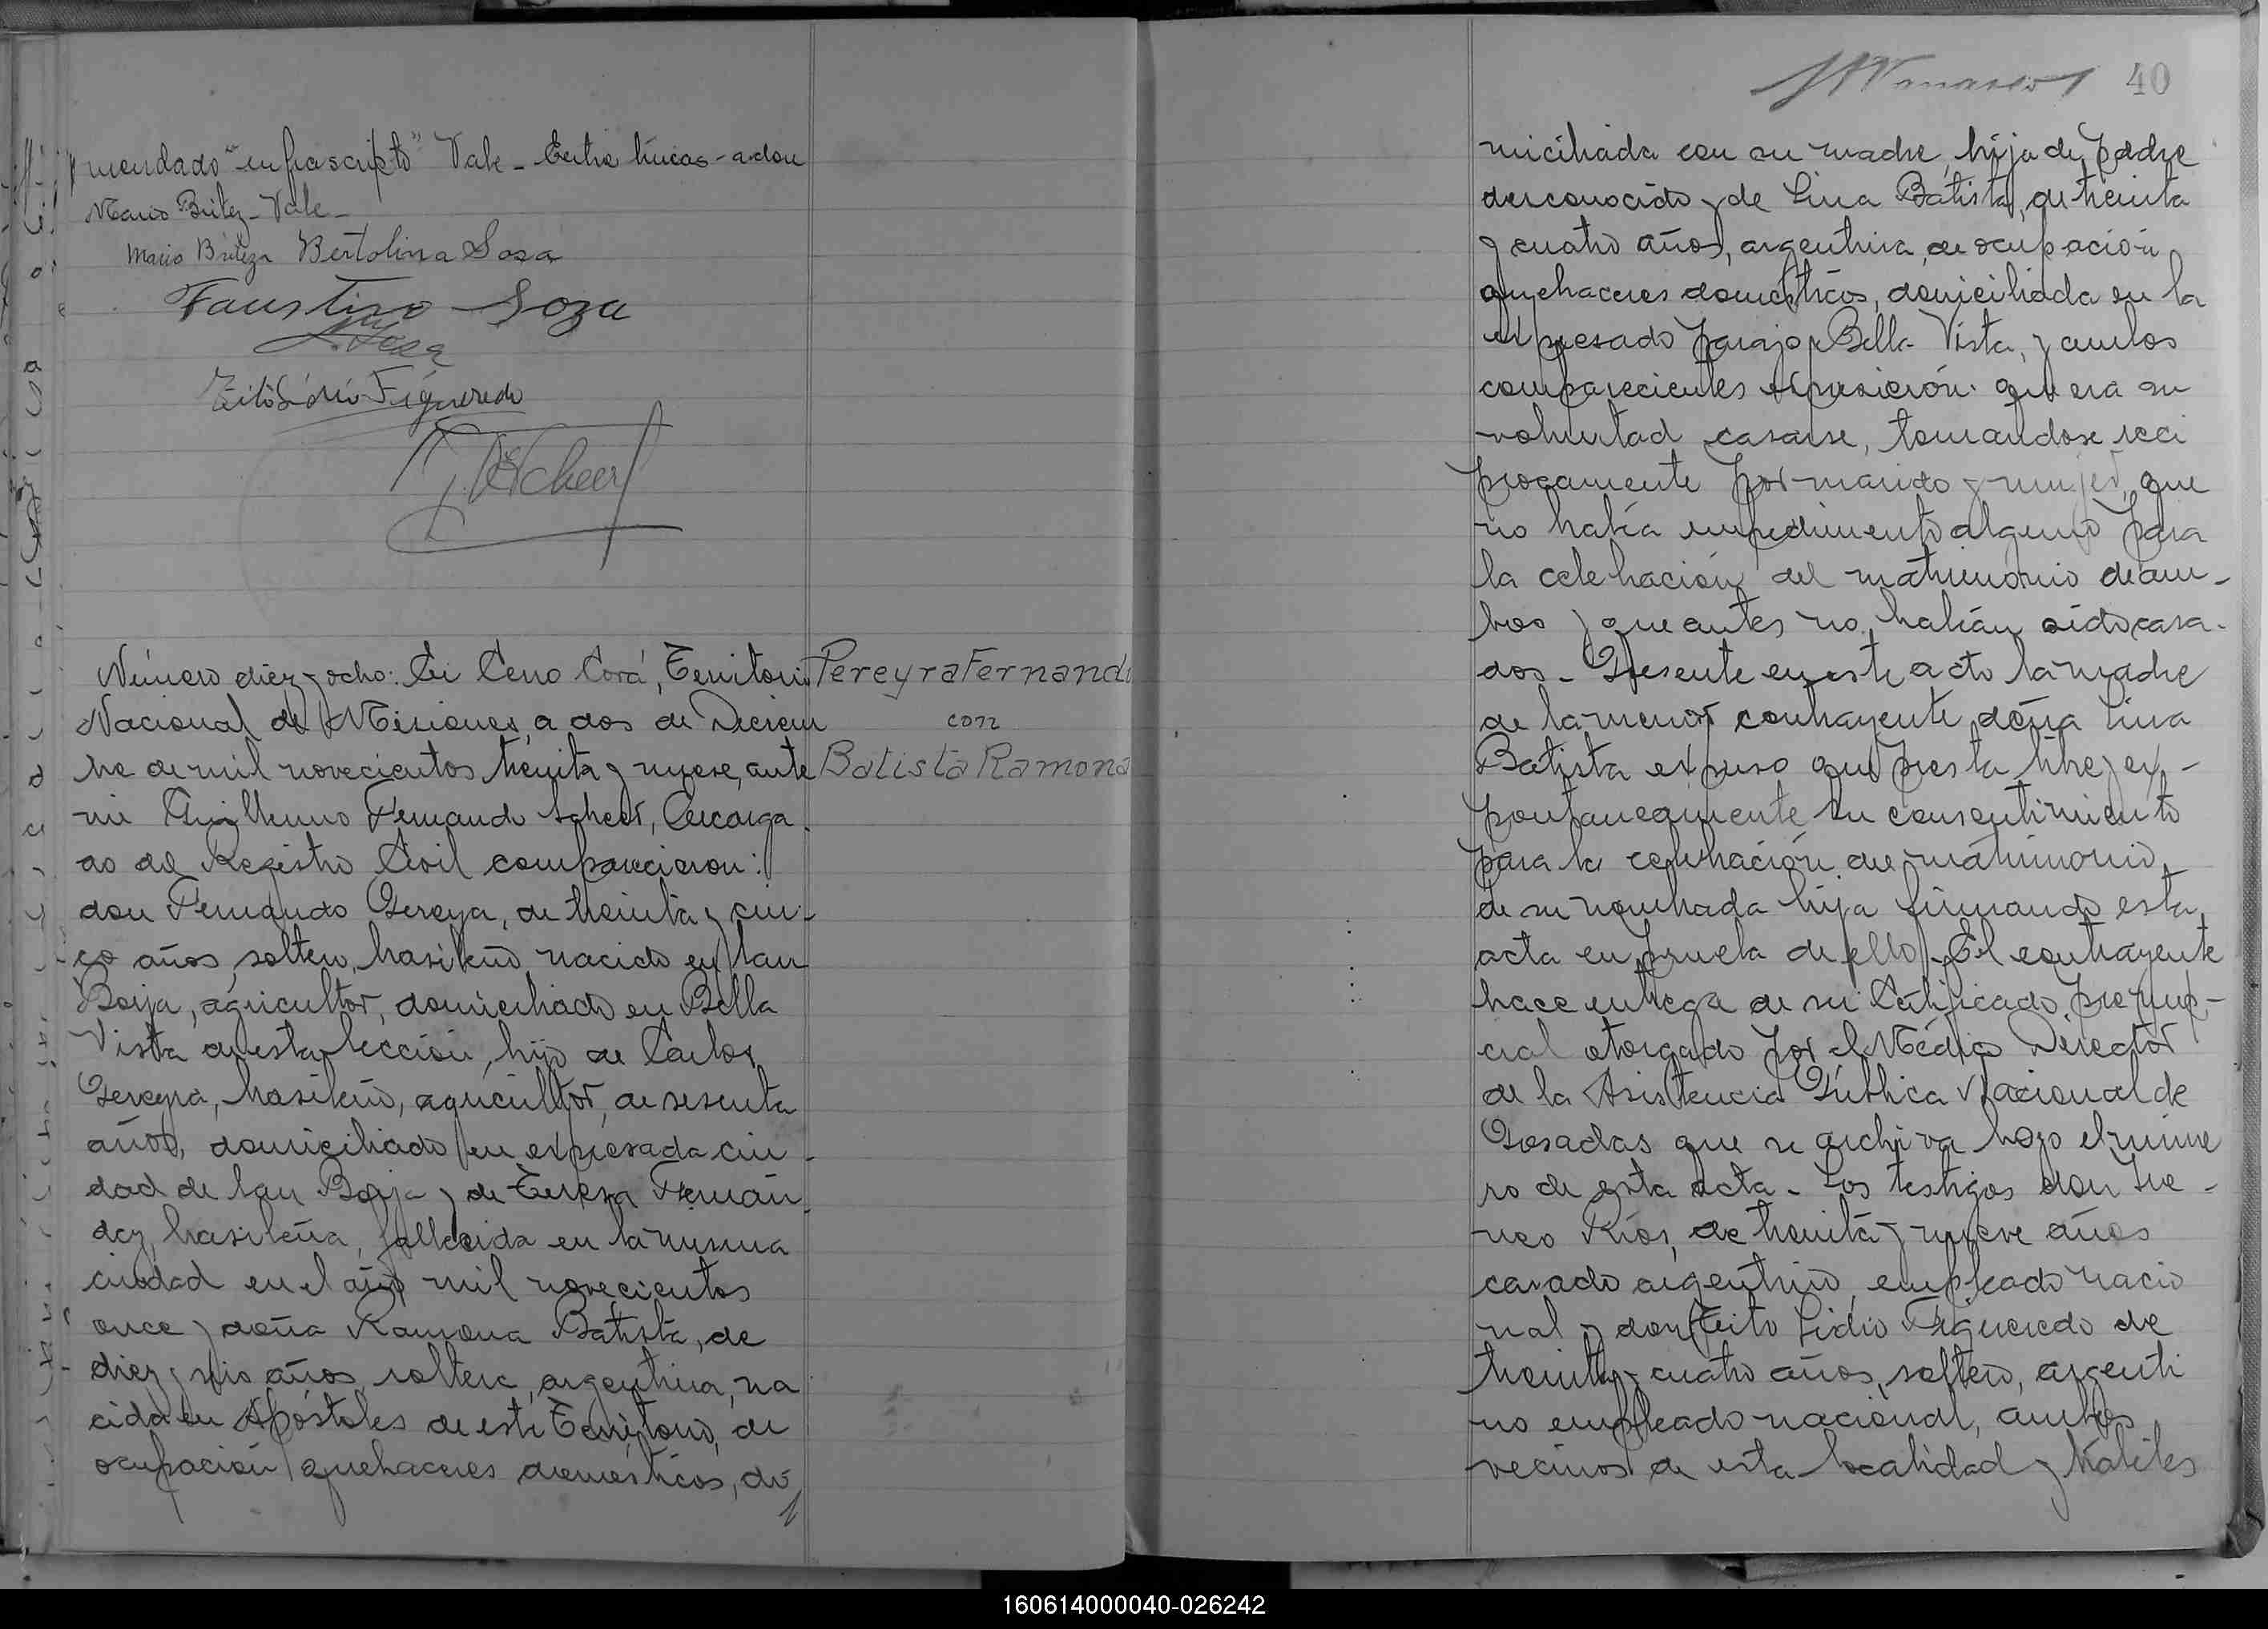 mendado "infrascripto" Vale - Entre líneas - a don
Mario Britez - Vale -
Mario Britez Bertolina Sosa
Faustino Soza
Sosa
Teito Lidio Figueredo
Scheer
Número diez y ocho: En Cerro Corá, Territorio
Nacional de Misiones, a dos de Diciem
bre de mil novecientos treinta y nueve, ante
mi Guillermo Fernando Scheer, Encarga
do del Registro Civil comparecieron:
don Fernando Pereyra, de treinta y cin-
co años, soltero, brasileño, nacido en San
Borja, agricultor, domiciliado en Bella
Vista de esta sección, hijo de Carlos
Pereyra, brasileño, agricultor, de sesenta
años, domiciliado en expresada ciu-
dad de San Borja y de Teresa Fernán
dez, brasileña, fallecida en la misma
ciudad en el año mil novecientos
once y doña Ramona Batista, de
diez y seis años, soltera, argentina, na
cida en Apóstoles de este Territorio, de
ocupación quehaceres domésticos, do
Pereyra Fernando
con
Batista Ramona
40
miciliada con su madre, hija de padre
desconocido y de Lina Batista, de treinta
y cuatro años, argentina, de ocupación
quehaceres domésticos, domiciliada en la
expresado paraje Bella Vista, y ambos
comparecientes expusieron: que era su
voluntad casarse, tomandose reci
procamente por marido y mujer, que
no había impedimento alguno para
la celebración del matrimonio de am-
bos y que antes no habían sido casa-
dos - Presente en este acto la madre
de la menor contrayente doña Lina
Batista expuso que presta libre y ex-
pontaneamente su consentimiento
para la celebración del matrimonio
de su nombrada hija firmando esta
acta en prueba de ello - El contrayente
hace entrega de su Certificado prenup-
cial otorgado por el Médico Director
de la Asistencia Pública Nacional de
Posadas que se archiva bajo el núme
ro de esta acta - Los testigos don Ire-
neo Ríos, de treinta y nueve años
casado argentino, empleado nacio
nal y don Teito Lidio Figueredo de
treinta y cuatro años, soltero, argenti
no empleado nacional, ambos
vecinos de esta localidad y hábiles
160614000040-026242